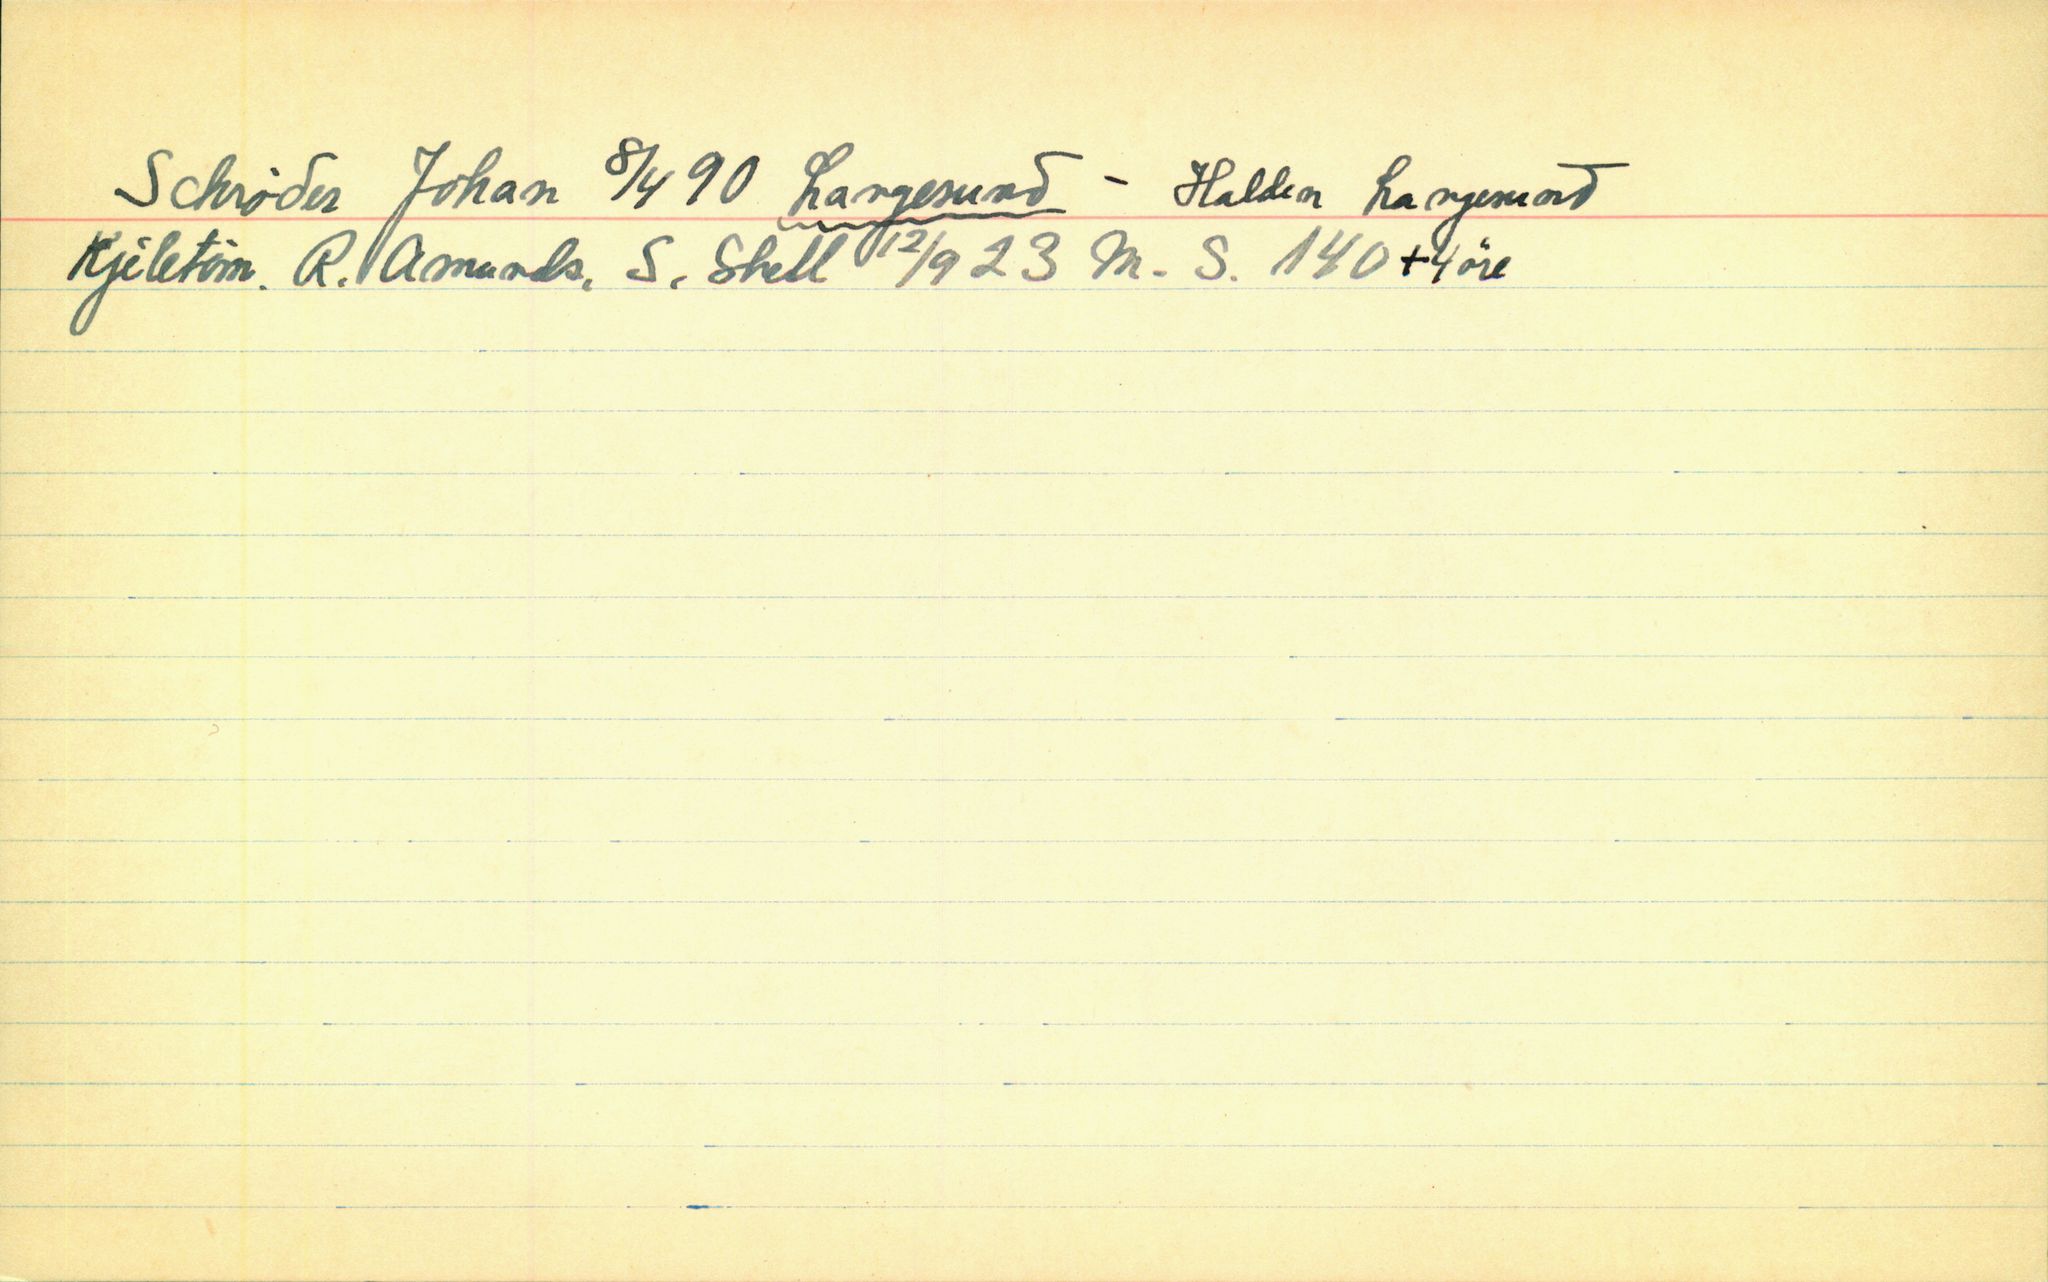 Schröder Johan 8/4 90 Langesund - Halden Langesund
Kjiletöm. R. Amunds. S. Shell 12/9 23 M. S. 140 + 4 öre